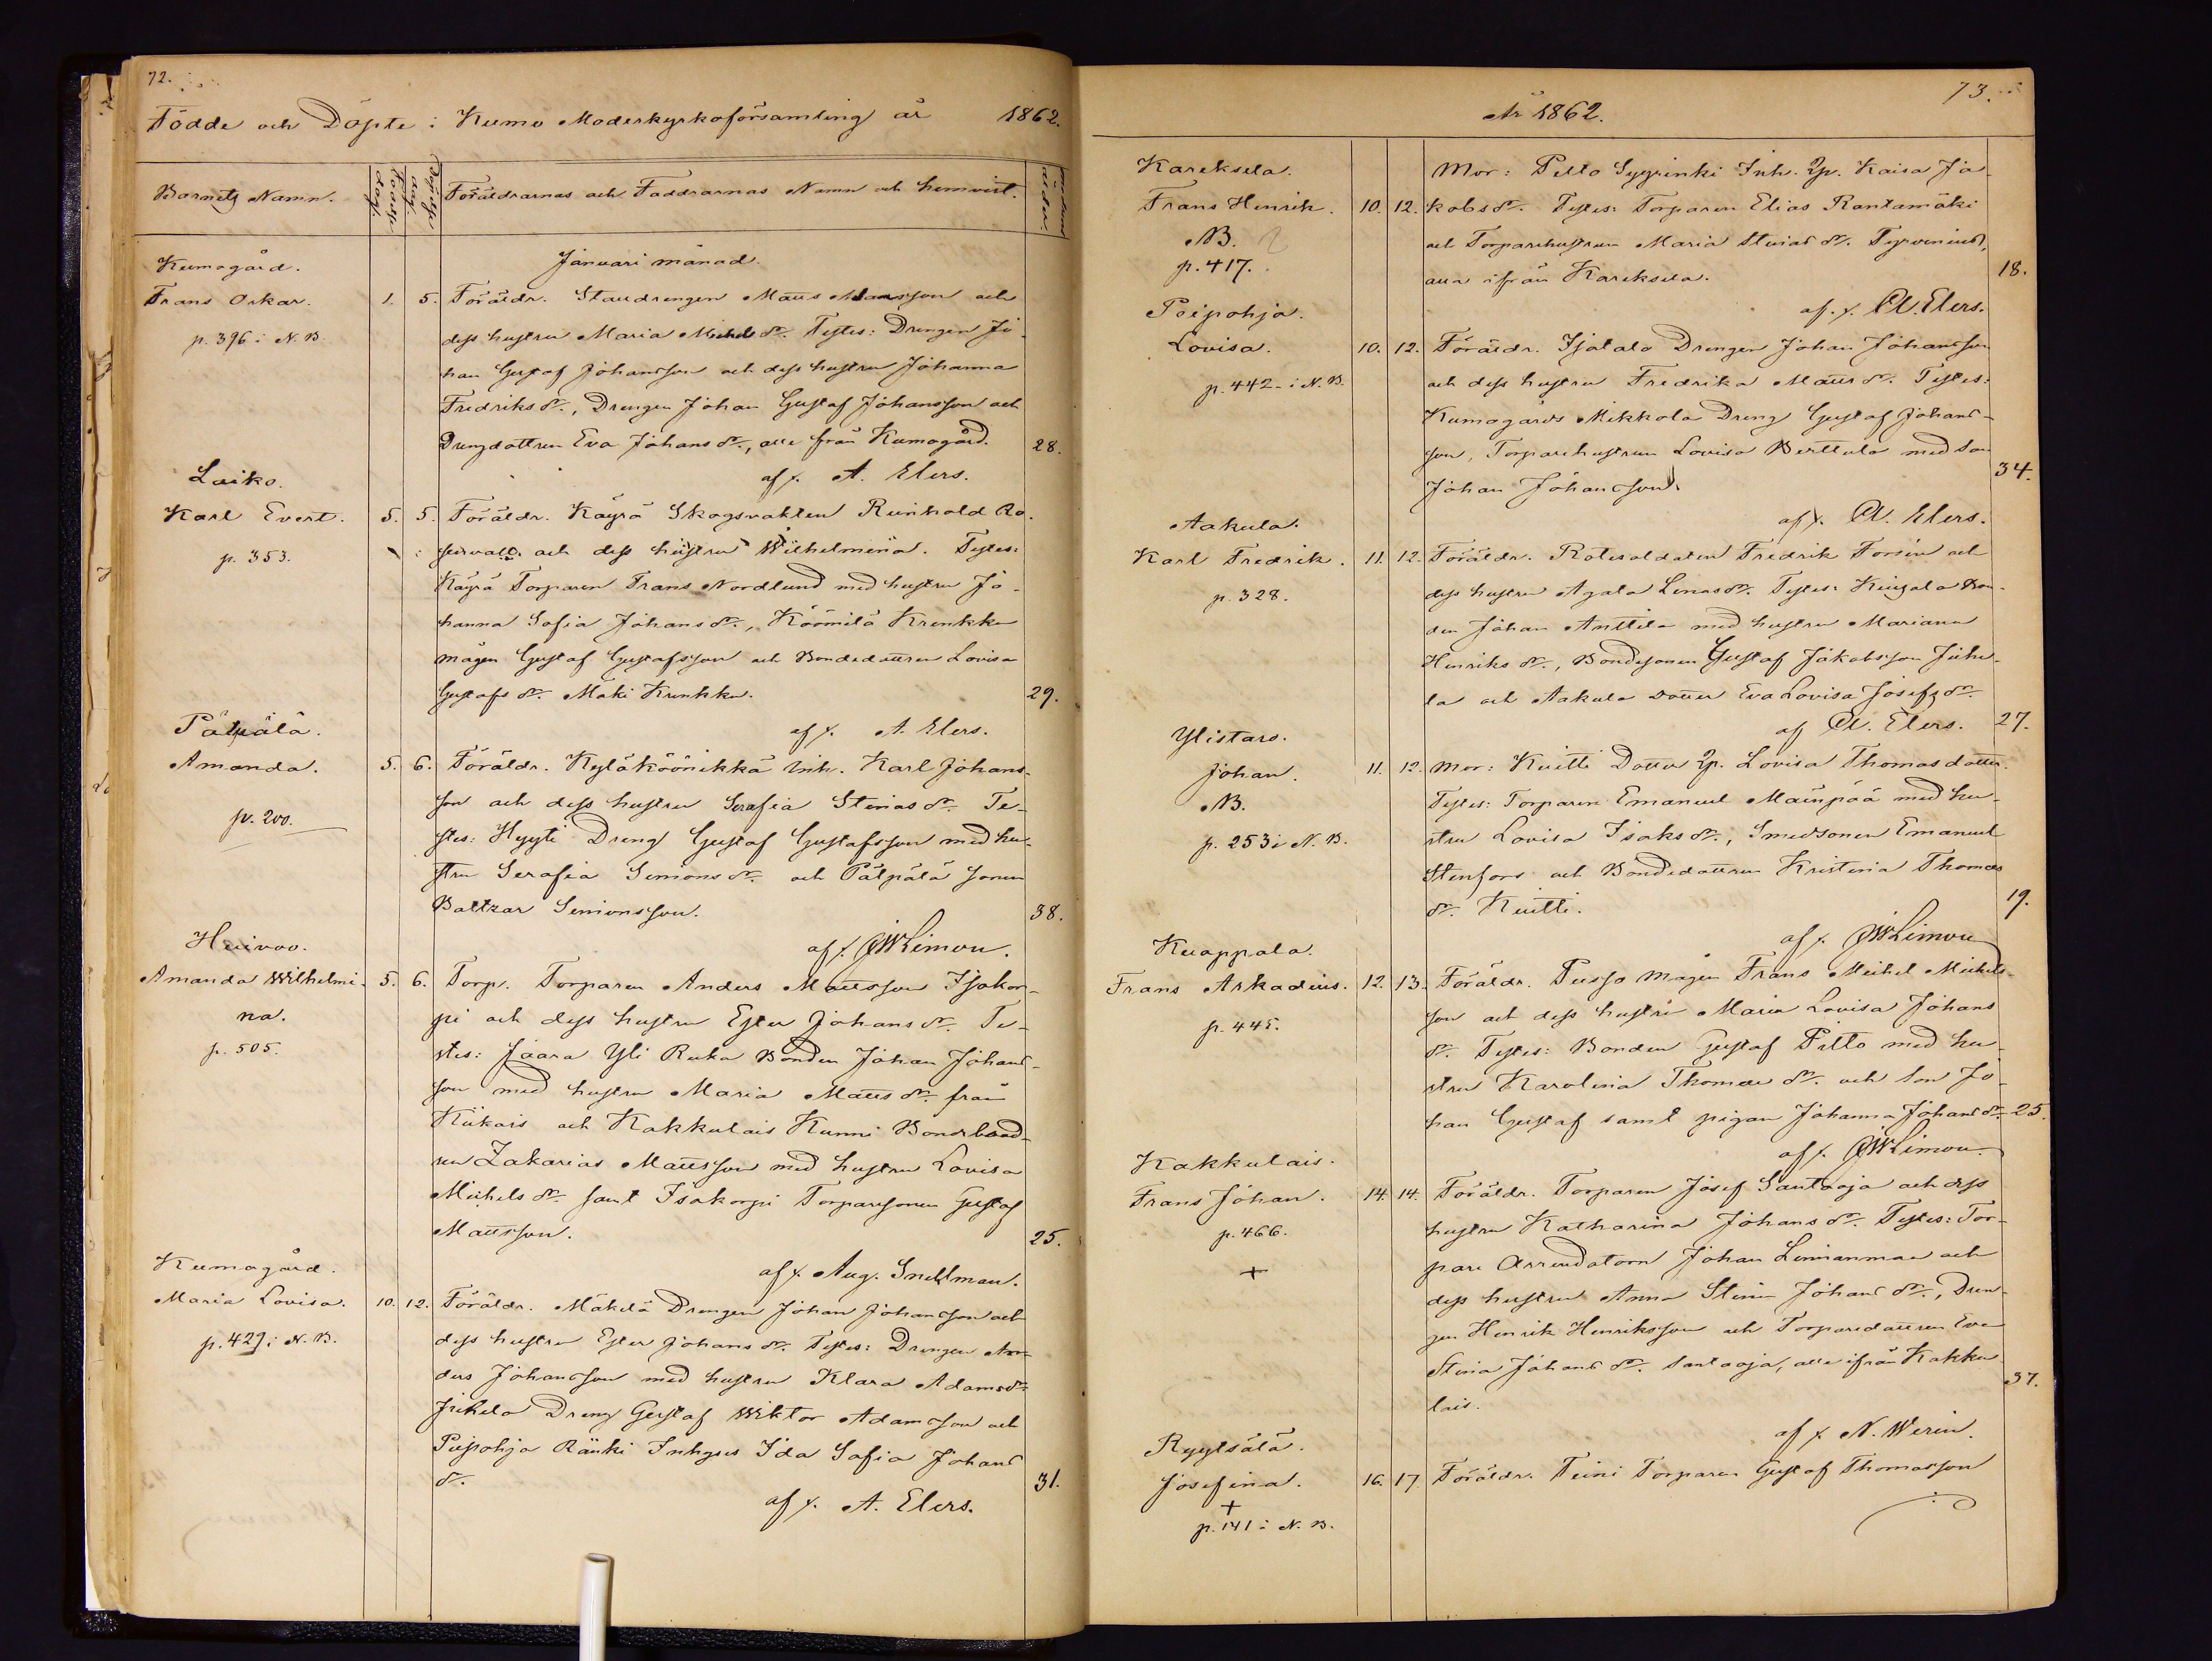 72.
Födde och Döpte i Kumo Moderkyrkoförsamling år 1862.
Barnets Namn.
Födelse dag.
Döpelse dag.
Föräldrarnas och Faddrarnas Namn och hemvist.
Modrens ålder.
Januari månad.
Kumogård.
Frans Oskar. 1. 5.
p. 396 i N. B.
Föräldr. Staudrengen Matts Mattsson och
dess hustru Maria Michels dr. Testes: Drengen Jo-
han Gustaf Johansson och dess hustru Johanna
Fredriks dr., Drengen Johan Gustaf Johansson och
Drengdottren Eva Johans dr., alle från Kumogård. 28.
af f. A. Elers.
Laiko.
Karl Evert. 5. 5.
p. 353.
Föräldr. Käyrä Skogsvakten Reinhold Ro-
servall och dess hustru Wilhelmina. Testes:
Käyrä Torparen Frans Nordlund med hustru Jo-
hanna Sofia Johans dr., Köömilä Krenkku
mågen Gustaf Gustafsson och Bondedottren Lovisa
Gustafs dr. Mäki Krunkku. 29.
af f. A. Elers.
Pälpälä.
Amanda. 5. 6.
p. 200.
Föräldr. Kyläköönikkä Inh. Karl Johans-
son och dess hustru Serafia Stinas dr. Te-
stes: Hyyti Dreng Gustaf Gustafsson med hu-
stru Serafia Simons dr. och Pälpälä sonen
Baltzar Simonsson. 38.
af f. JW Limon.
Huivoo.
Amanda Wilhelmi-
na. 5. 6.
p. 505.
Torp. Torparen Anders Mattsson Isokor-
pi och dess hustru Ester Johans dr. Te-
stes: Jaara Yli Ruka Bonden Johan Johans-
son med hustru Maria Matts dr. från
Kiukais och Kakkulais Kunni Bondbond-
ren Zakarias Mattsson med hustru Lovisa
Michels dr. samt Isokorpi Torparesonen Gustaf
Mattsson. 25.
af f. Aug. Snellman.
Kumogård.
Maria Lovisa. 10. 12.
p. 429 i N. B.
Föräldr. Mäkelä Drengen Johan Johansson och
dess hustru Ester Johans dr. Testes: Drengen An-
ders Johansson med hustru Klara Adams dr.
Jukela Dreng Gustaf Wiktor Adamsson och
Peipohja Ränki Inhyses Ida Sofia Johans
dr. 31.
af f. A. Elers.
73.
År 1862.
Kareksela.
Frans Henrik. 10. 12.
NB.
p. 417.
Mor: Pelto Syyrinki Inh. Qp. Kaisa Ja-
kobs dr. Testes: Torparen Elias Rantamäki
och Torparehustrun Maria Stinas dr. Tyrvenius,
alla ifrån Kareksela. 18.
af f. A. Elers.
Peipohja.
Lovisa. 10. 12.
p. 442 i N. B.
Föräldr. Isotalo Drengen Johan Johansson
och dess hustru Fredrika Matts dr. Testes:
Kumogårds Mikkola Dreng Gustaf Johans-
son, Torparehustrun Lovisa Berttula med son
Johan Johansson. 34.
af f. A. Elers.
Aakula.
Karl Fredrik. 11. 12.
p. 328.
Föräldr. Rotesoldaten Fredrik Forsén och
dess hustru Agata Linas dr. Testes: Kuigala Bon-
den Johan Anttila med hustru Mariana
Henriks dr., Bondesonen Gustaf Jakobsson Juhe-
la och Aakula dotter Eva Lovisa Josefs dr.
af A. Elers. 27.
Ylistaro.
Johan. 11. 12.
NB.
p. 253 i N. B.
Mor: Kuitti Dotter Qp. Lovisa Thomasdotter.
Testes: Torparen Emanuel Mainpää med hu-
stru Lovisa Isaks dr., Smedsonen Emanuel
Stenfors och Bondedottren Kristina Thomas
dr. Kuitti. 19.
af f. JW Limon
Kuappala.
Frans Arkadius. 12. 13.
p. 445.
Föräldr. Pusso mågen Frans Michel Michels-
son och dess hustru Maria Lovisa Johans
dr. Testes: Bonden Gustaf Pitto med hu-
stru Karolina Thomas dr. och son Jo-
han Gustaf samt pigan Johanna Johans dr. 25.
af f. JW Limon.
Kakkulais.
Frans Johan. 14. 14.
p. 466.
+
Föräldr. Torparen Josef Santaoja och dess
hustru Katharina Johans dr. Testes: Tor-
pare Arrendatorn Johan Linnanmaa och
dess hustru Anna Stina Johans dr., Dren-
gen Henrik Henriksson och Torparedottren Eva
Stina Johans dr. Santaoja, alle ifrån Kakku-
lais. 37.
af f. N. Werin.
Ryytsälä.
Josefina. 16. 17.
+
p. 141 i N. B.
Föräldr. Teini Torparen Gustaf Thomasson